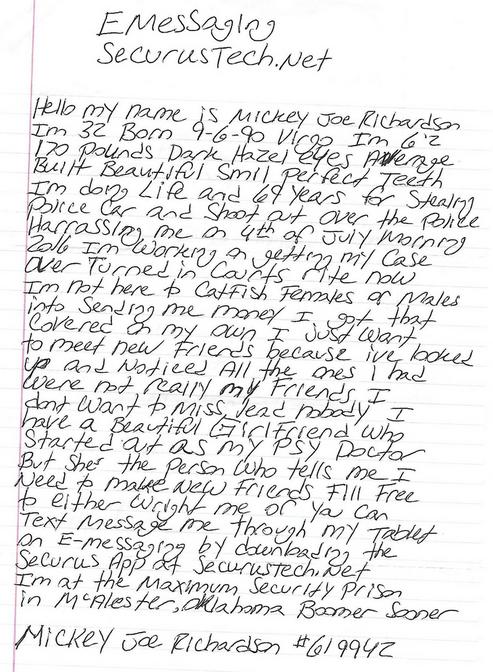 EMessaging
SecurusTech.Net
Hello my name is Mickey Joe Richardson
Im 32 Born 9-6-90 Virgo Im 6'2
170 Pounds Dark Hazel eyes Average
Built Beautiful Smil Perfect Teeth
Im doing Life and 69 Years for Stealing
Police Car and Shoot out Over the Police
Harrassing me on 4th of July Morning
2016 Im Working on getting my Case
Over Turned in Courts rite now
Im not here to Catfish Females or Males
into Sending me money I got that
Covered on my own I Just Want
to meet new Friends because ive looked
up and Noticed All the ones I had
Were not really my Friends I
dont Want to Miss Lead nobody I
have a Beautiful Girl Friend Who
Started out as my Psy Doctor
But Shes the Person Who tells me I
Need to make New Friends Fill Free
to either Wright me or You Can
Text Message me through my Tablet
on E-messaging by downloading the
Securus App at SecurusTech.Net
Im at the Maximum Security Prison
in McAlester, Oklahoma Boomer Sooner
Mickey Joe Richardson #619942